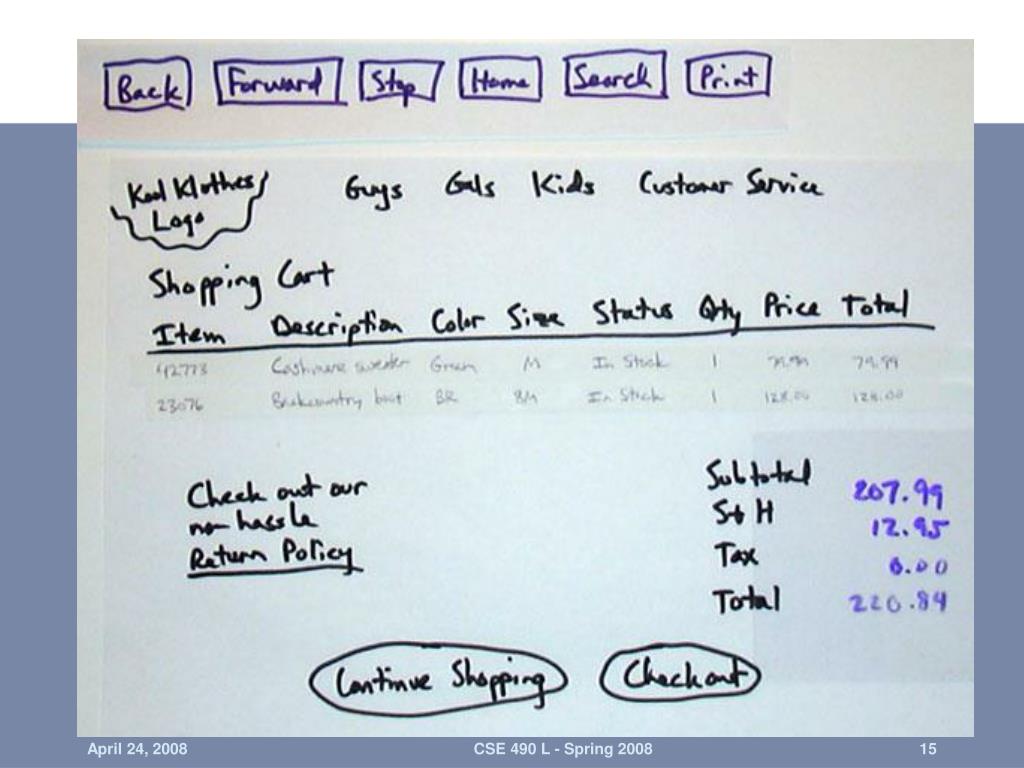 Back Forward Stop Home Search Print
Kool Klothes Logo Guys Gals Kids Customer Service
Shopping Cart
Item Description Color Size Status Qty Price Total
42773 Cashmere sweater Green M In Stock 1 79.99 79.99
23076 Backcountry boot BR 8M In Stock 1 128.00 128.00
Check out our
no hassle
Return Policy
Subtotal 207.99
S+H 12.95
Tax 0.00
Total 220.94
Continue Shopping Checkout
April 24, 2008 CSE 490 L - Spring 2008 15